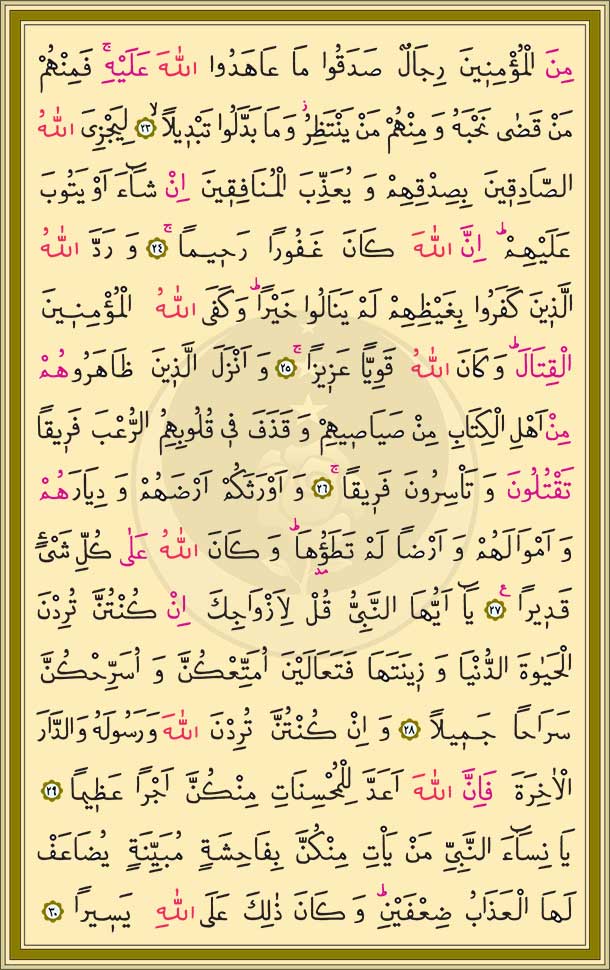 مِنَ الْمُؤْمِنٖينَ رِجَالٌ صَدَقُوا مَا عَاهَدُوا اللّٰهَ عَلَيْهِۚ فَمِنْهُمْ
مَنْ قَضٰى نَحْبَهُ وَ مِنْهُمْ مَنْ يَنْتَظِرُۘ وَ مَا بَدَّلُوا تَبْدٖيلًاۙ ﴿٢٣﴾ لِيَجْزِىَ اللّٰهُ
الصَّادِقٖينَ بِصِدْقِهِمْ وَ يُعَذِّبَ الْمُنَافِقٖينَ اِنْ شَٓاءَ اَوْ يَتُوبَ
عَلَيْهِمْؕ اِنَّ اللّٰهَ كَانَ غَفُورًا رَحٖيمًاۚ ﴿٢٤﴾ وَ رَدَّ اللّٰهُ
الَّذٖينَ كَفَرُوا بِغَيْظِهِمْ لَمْ يَنَالُوا خَيْرًاؕ وَ كَفَى اللّٰهُ الْمُؤْمِنٖينَ
الْقِتَالَؕ وَ كَانَ اللّٰهُ قَوِيًّا عَزٖيزًاۚ ﴿٢٥﴾ وَ اَنْزَلَ الَّذٖينَ ظَاهَرُوهُمْ
مِنْ اَهْلِ الْكِتَابِ مِنْ صَيَاصٖيهِمْ وَ قَذَفَ فٖى قُلُوبِهِمُ الرُّعْبَ فَرٖيقًا
تَقْتُلُونَ وَ تَاْسِرُونَ فَرٖيقًاۚ ﴿٢٦﴾ وَ اَوْرَثَكُمْ اَرْضَهُمْ وَ دِيَارَهُمْ
وَ اَمْوَالَهُمْ وَ اَرْضًا لَمْ تَطَؤُ۫هَاؕ وَ كَانَ اللّٰهُ عَلٰى كُلِّ شَىْءٍ
قَدٖيرًاࣖ ﴿٢٧﴾ يَٓا اَيُّهَا النَّبِىُّ قُلْ لِاَزْوَاجِكَ اِنْ كُنْتُنَّ تُرِدْنَ
الْحَيٰوةَ الدُّنْيَا وَ زٖينَتَهَا فَتَعَالَيْنَ اُمَتِّعْكُنَّ وَ اُسَرِّحْكُنَّ
سَرَاحًا جَمٖيلًا ﴿٢٨﴾ وَ اِنْ كُنْتُنَّ تُرِدْنَ اللّٰهَ وَ رَسُولَهُ وَ الدَّارَ
الْاٰخِرَةَ فَاِنَّ اللّٰهَ اَعَدَّ لِلْمُحْسِنَاتِ مِنْكُنَّ اَجْرًا عَظٖيمًا ﴿٢٩﴾
يَا نِسَٓاءَ النَّبِىِّ مَنْ يَاْتِ مِنْكُنَّ بِفَاحِشَةٍ مُبَيِّنَةٍ يُضَاعَفْ
لَهَا الْعَذَابُ ضِعْفَيْنِؕ وَ كَانَ ذٰلِكَ عَلَى اللّٰهِ يَسٖيرًا ﴿٣٠﴾